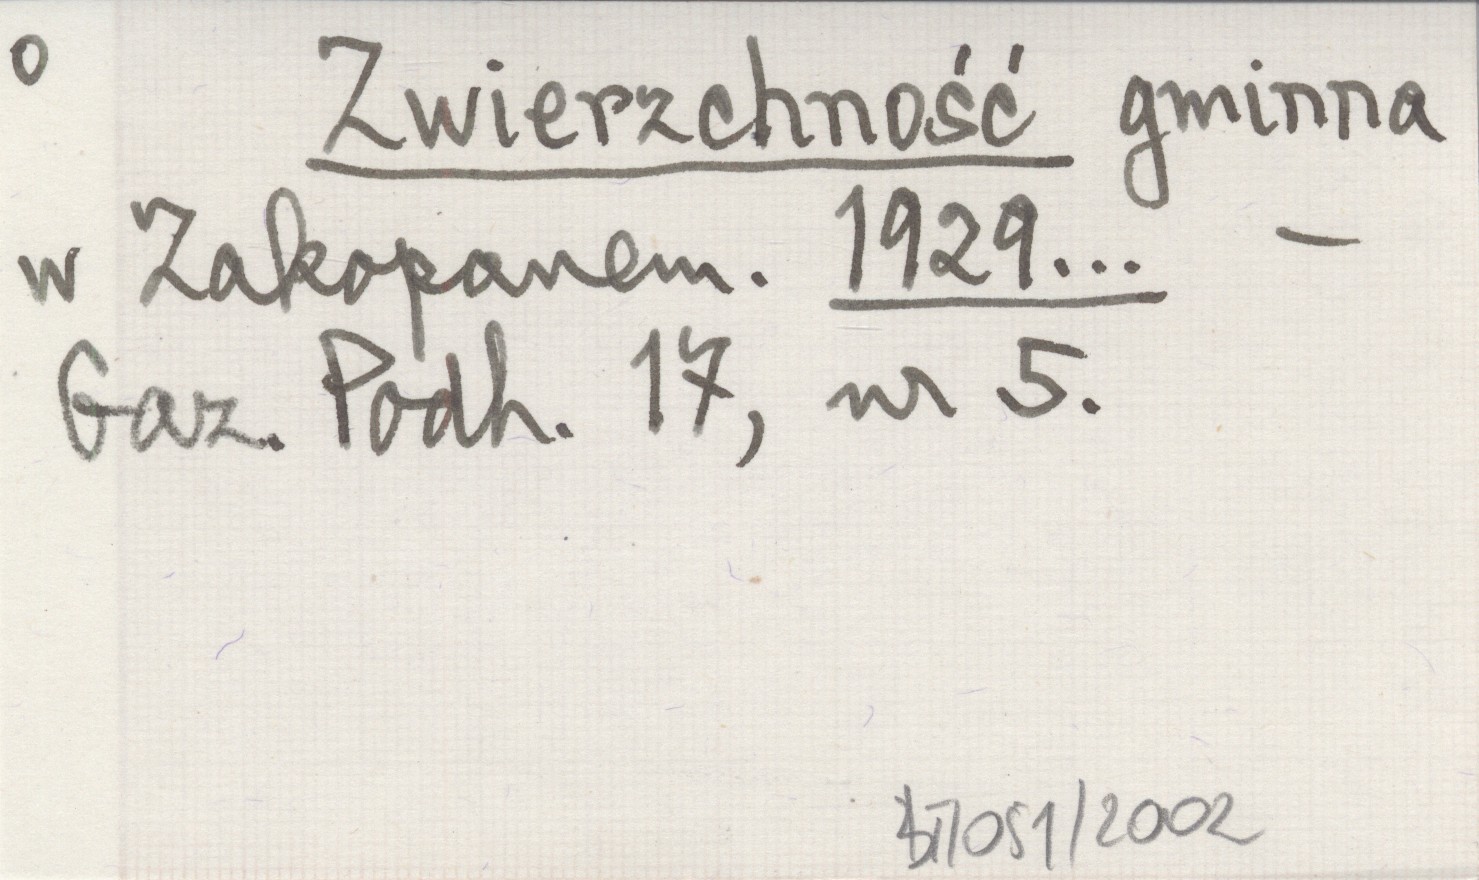 o Zwierzchność gminna
w Zakopanem. 1929... –
Gaz. Podh. 17, nr 5.
/051/2002